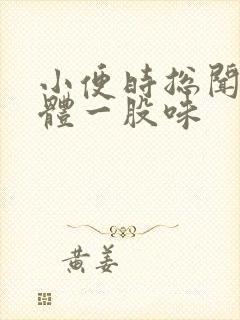 小便時总聞
體一股味
黄姜